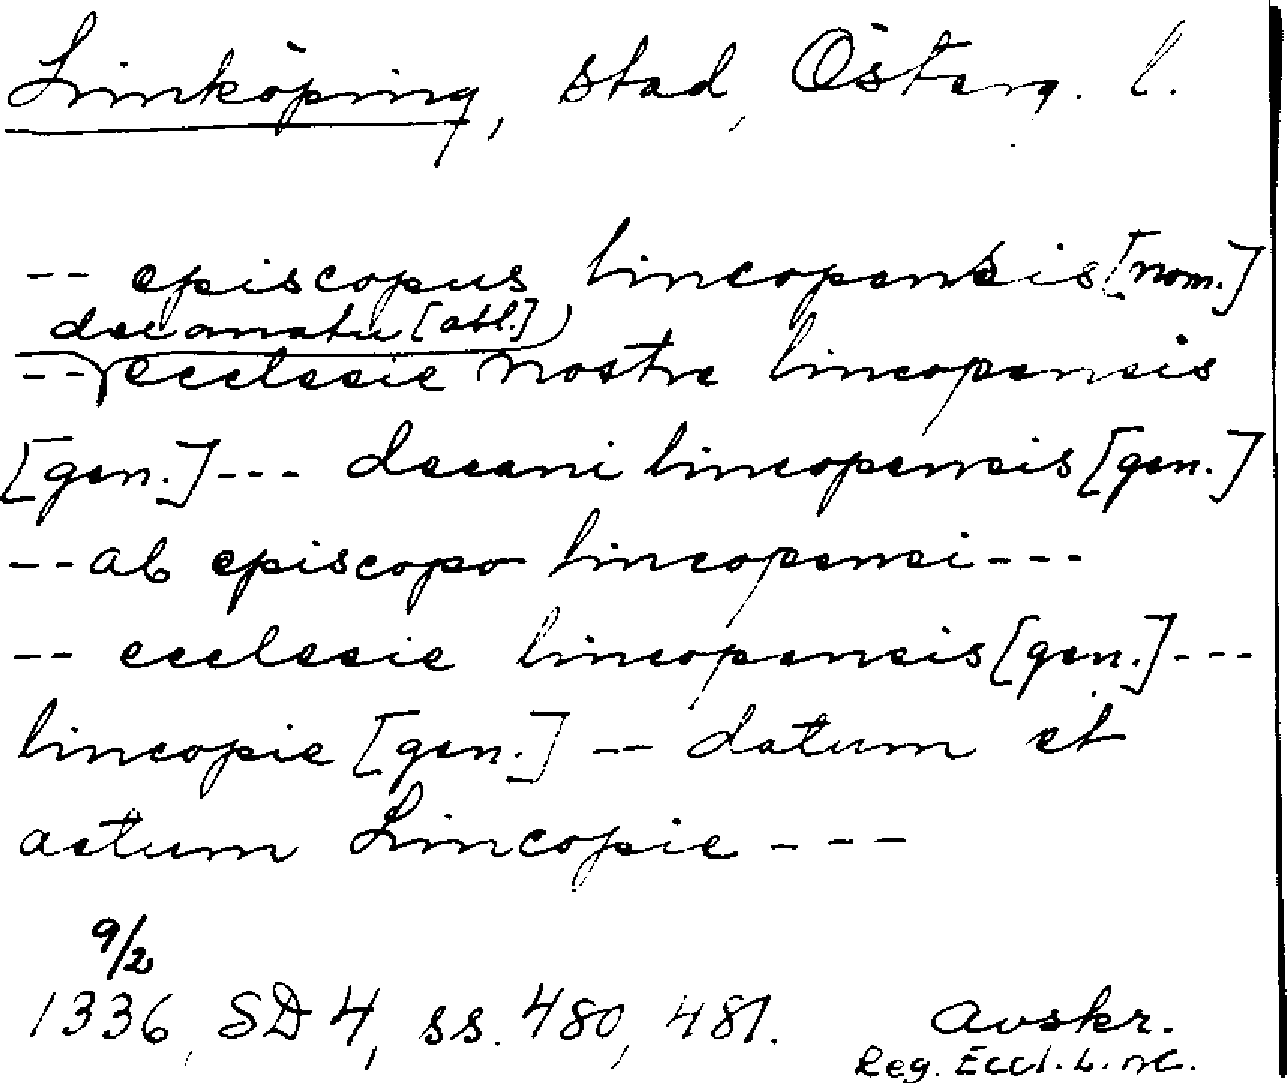 Linköping, stad, Österg. l.
-- episcopus lincopensis [nom.]
decanatu [abl.]
-- ecclesie nostre lincopensis
[gen.] --- decani lincopensis [gen.]
-- ab episcopo lincopensi ---
-- ecclesie lincopensis [gen.] ---
lincopie [gen.] -- datum et
actum Lincopie ---
9/2
1336, SD 4, ss. 480, 481. Avskr.
Reg. Eccl. Linc.